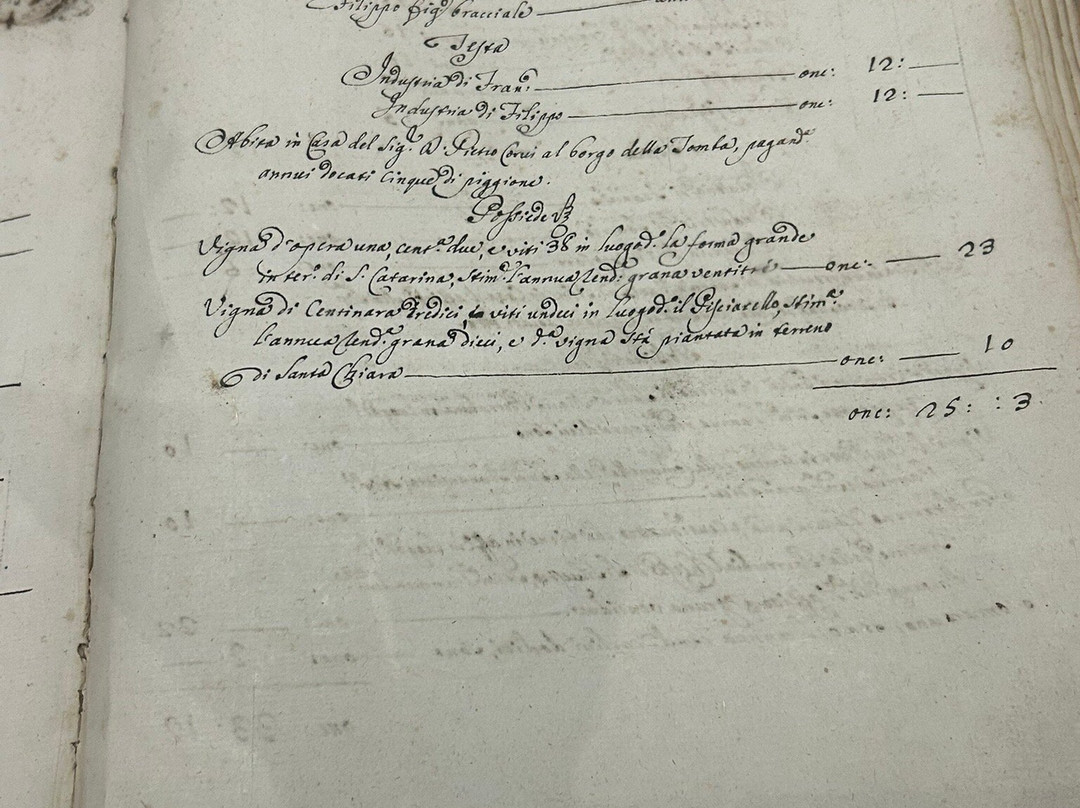 Filippo fig.o bracciale
Testa
Industria di Fran.o onc: 12:
Industria di Filippo onc: 12:
Abita in Casa del Sig.r D. Pietro Corvi al borgo della Tomba, pagand.o
annui docati Cinque di piggione.
Possiede
Vigna d'opera una, cent.a due, e viti 38 in luogo d.o la forma grande
in ter.o di S. Catarina, stim.a l'annua rend.a grana ventitrè onc: 23
Vigna di Centinara tredici, e viti undeci in luogo d.o il Pisciarello, stim.a
l'annua rend.a grana dieci, e d.a vigna stà piantata in terreno
di Santa Chiara onc: 10
onc: 25: : 3